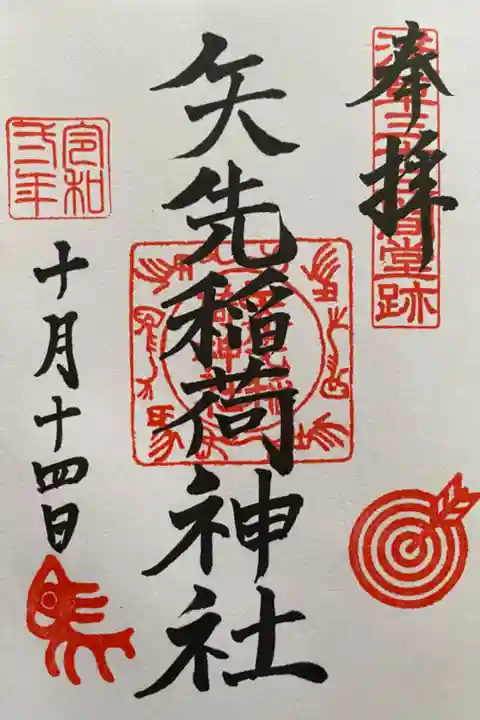 奉拝
浅草三十三間堂跡
矢先稲荷神社
令和弐年
十月十四日